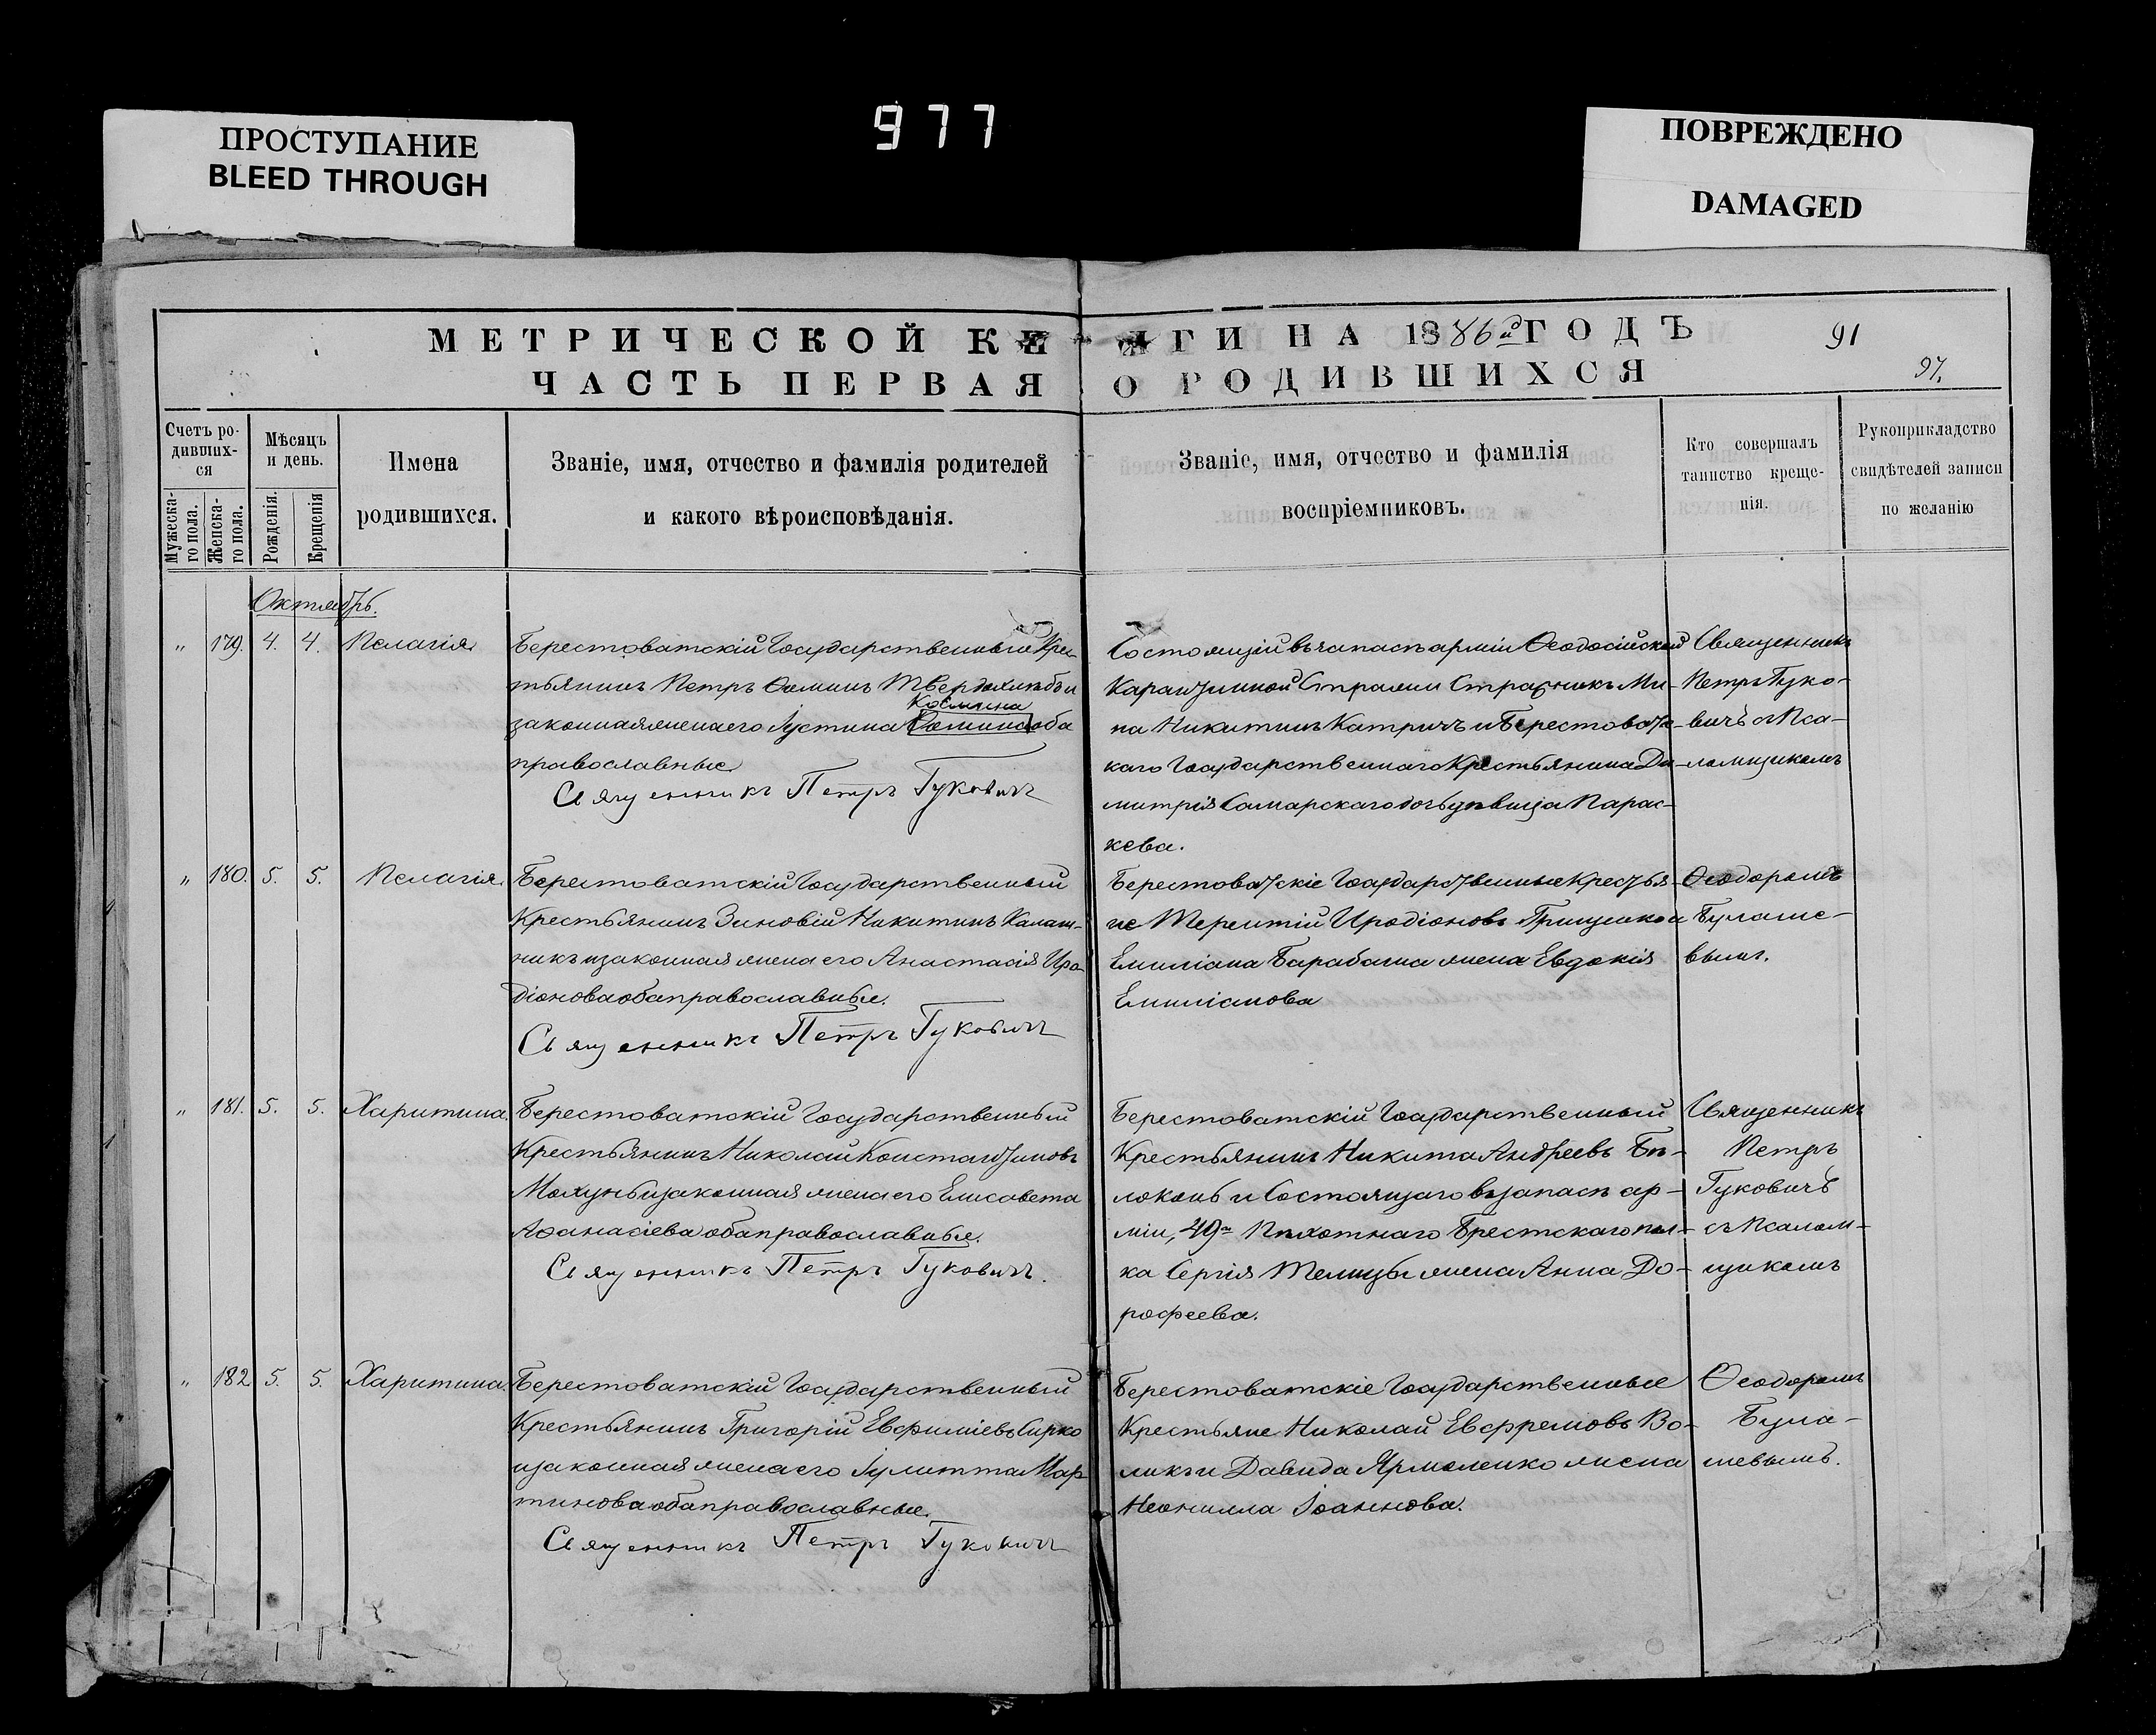 977
ПРОСТУПАНИЕ
BLEED THROUGH
ПОВРЕЖДЕНО
DAMAGED
МЕТРИЧЕСКОЙ КН ИГИ НА 1886й ГОДЪ
91
ЧАСТЬ ПЕРВАЯ О РОДИВШИХСЯ
97.
Счетъ ро-
дивших-
ся
Мужеска-
го пола.
Женска-
го пола.
Мѣсяцъ
и день.
Рожденія.
Крещенія
Имена
родившихся.
Званіе, имя, отчество и фамилія родителей
и какого вѣроисповѣданія.
Званіе, имя, отчество и фамилія
воспріемниковъ.
Кто совершалъ
таинство креще-
нія.
Рукоприкладство
свидѣтелей записи
по желанію
Октябрь.
" 179. 4. 4. Пелагія
Берестоватскій Государственный Кре-
тьянинъ Петръ Ѳоминъ Твердохлѣбъ и
Космина
законная жена его Іустина Ѳомина оба
православные
Священникъ Петръ Гуковичъ
Состоящій въ запасѣ арміи Ѳеодосійской
Карантинной Стражи Стражникъ Ми-
на Никитинъ Катричъ и Берестоватс-
каго Государственнаго Крестьянина Ди-
митрія Самарскаго дочь дѣвица Парас-
кева.
Священникъ
Петръ Гуко-
вичъ съ Пса-
ломщикомъ
" 180. 5. 5. Пелагія.
Берестоватскій Государственный
Крестьянинъ Зиновій Никитинъ Калаш-
никъ и законная жена его Анастасія Иро-
діонова оба православные.
Священникъ Петръ Гуковичъ
Берестоватскіе Государственные Крестья-
не Терентій Иродіоновъ Грищенко и
Емиліана Барабаша жена Евдокія
Емиліанова
Ѳеодоромъ
Булаше-
вымъ.
" 181. 5. 5. Харитина.
Берестоватскій Государственный
Крестьянинъ Николай Константиновъ
Мохунь и законная жена его Елисавета
Аѳанасіева оба православные.
Священникъ Петръ Гуковичъ.
Берестоватскій Государственный
Крестьянинъ Никита Андреевъ Бѣ-
локонь и Состоящаго въ запасѣ ар-
міи, 49го Пѣхотнаго Брестскаго пол-
ка Сергія Телицы жена Анна До-
рофеева.
Священникъ
Петръ
Гуковичъ
съ Псалом-
щикомъ
" 182 5. 5. Харитина.
Берестоватскій Государственный
Крестьянинъ Григорій Евфиміевъ Сирко
и законная жена его Іулитта Мар-
тинова оба православные.
Священникъ Петръ Гуковичъ
Берестоватскіе Государственные
Крестьяне Николай Евффремовъ Во-
ликъ и Давида Ярмоленко жена
Неонилла Іоаннова.
Ѳеодоромъ
Була-
шевымъ.